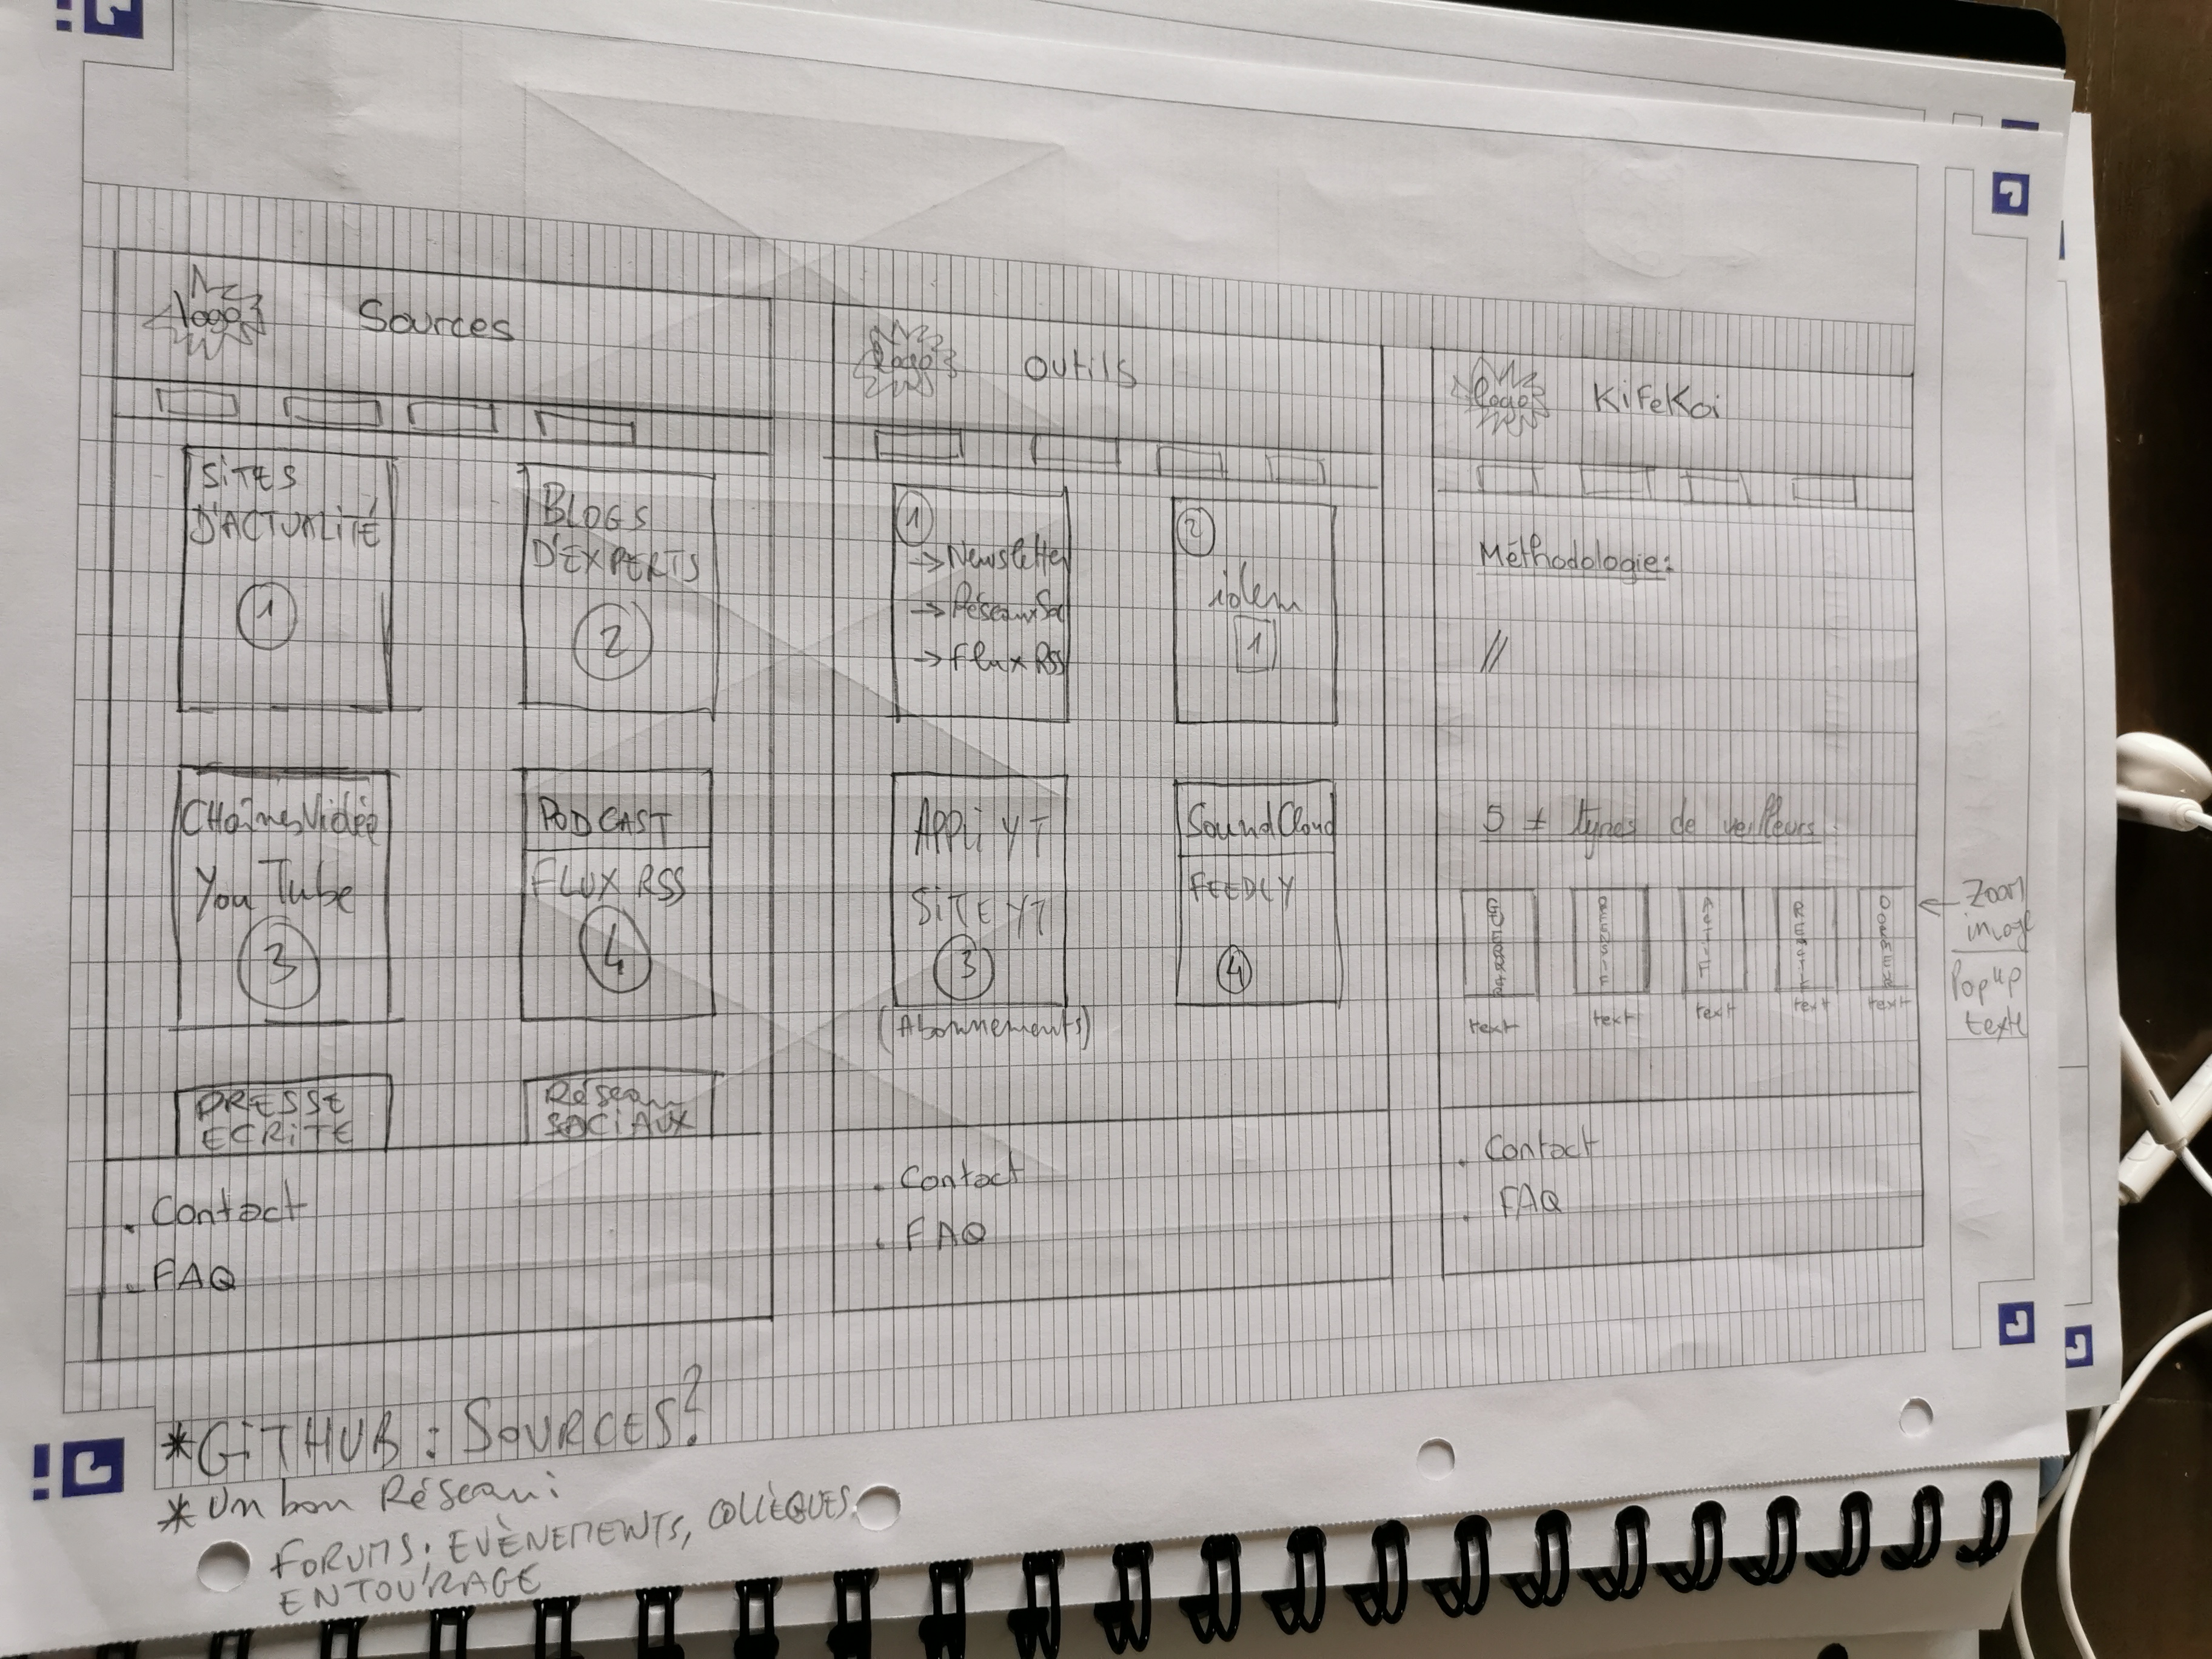 logo Sources
SITES
D'ACTUALITÉ
1
BLOGS
D'EXPERTS
2
CHaînes Vidéo
You Tube
3
PODCAST
FLUX RSS
4
PRESSE
ECRITE
Réseau
SOCIAUX
. Contact
. FAQ
logo OUtils
1
→ Newsletter
→ Réseaux Soc
→ Flux RSS
2
idem
1
APPLi YT
SiTE YT
3
(Abonnements)
SoundCloud
FEEDLY
4
. Contact
. FAQ
logo KiFeKoi
Méthodologie:
//
5 ≠ types de veilleurs:
ACTIF
text
text
text
text
text
← Zoom
image
Popup
texte
. Contact
. FAQ
*GiTHUB : SOURCES?
* Un bon Réseau:
FORUMS, EVÈNEMENTS, COLLÈGUES,
ENTOURAGE